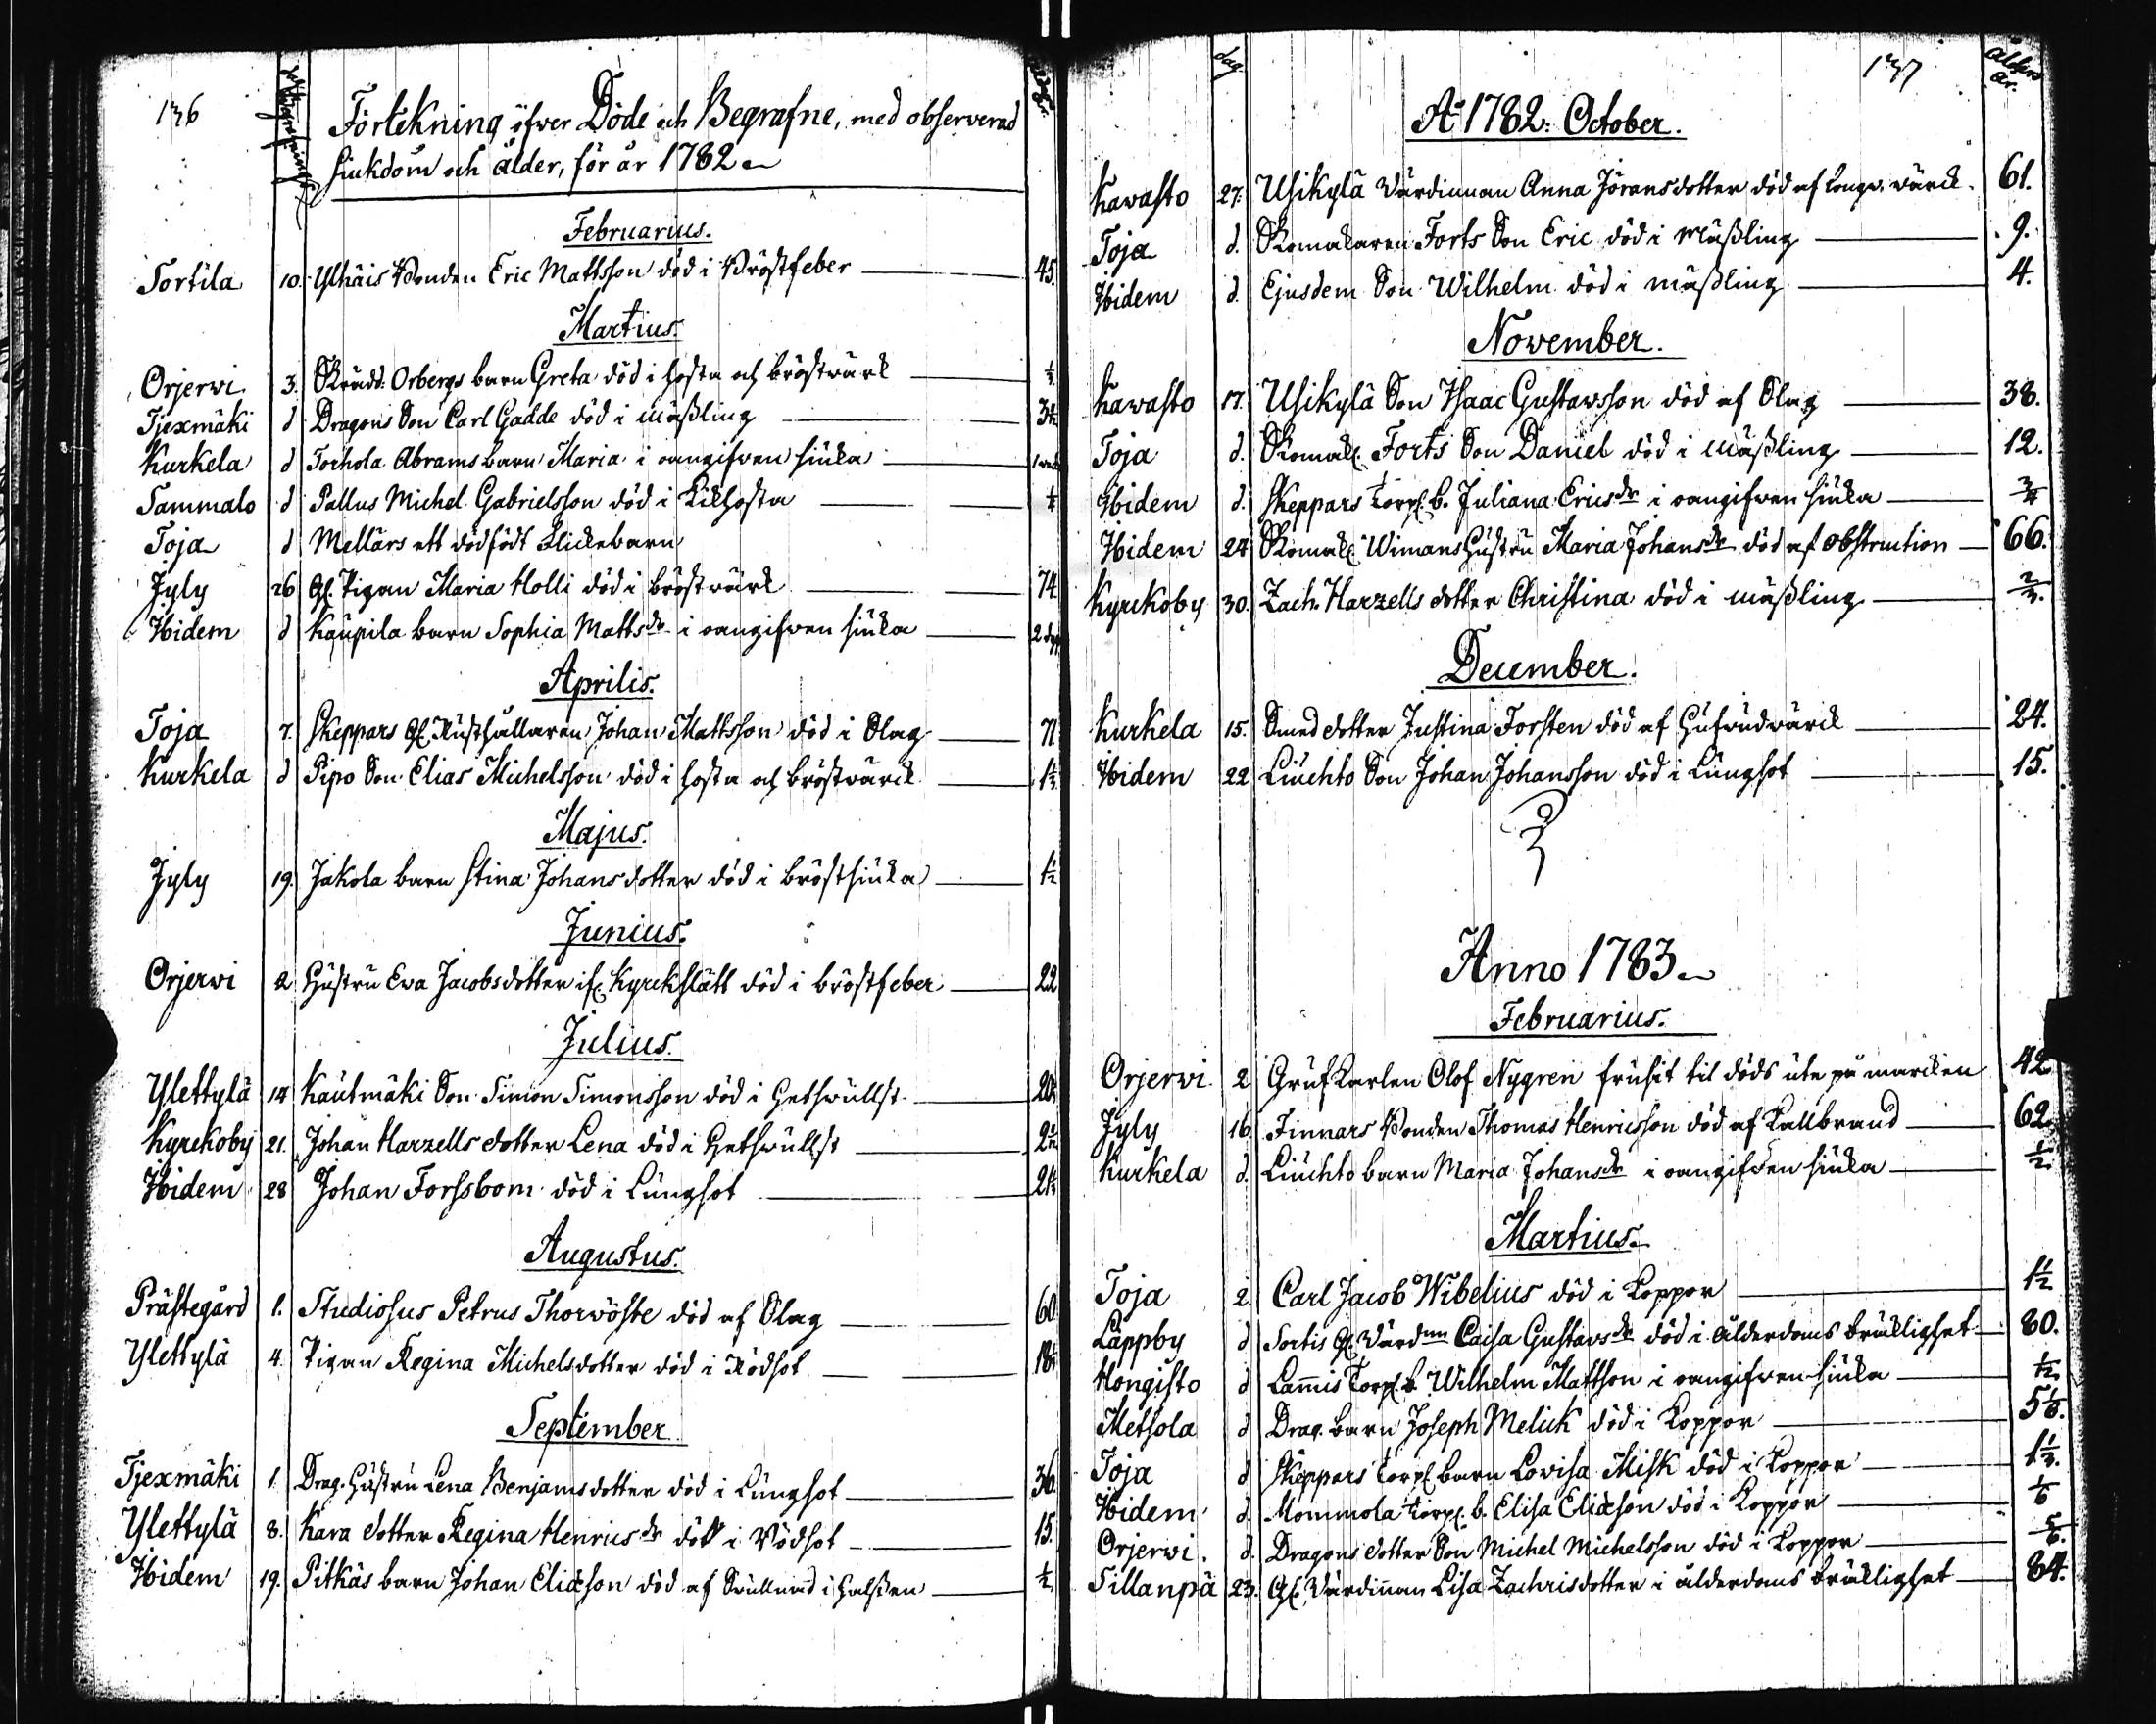 136
Förtekning öfwer Döde och Begrafne, med observerad
siukdom och ålder, för år 1782
Februarius.
Sortila 10. Ylhäis Bonden Eric Mattsson död i Bröstfeber 45.
Martius.
Orjerwi 3. Skrädd. Orbergs barn Greta död i hosta och bröstwärk
Tjexmäki d Dragons Son Carl Gadde död i mäßling 3½
Kurkela d Torhola Abrams barn Maria i oangifwen siuka
Sammalo d Pallus Michel Gabrielsson död i Kikhosta
Toja d Mellärs ett dödfödt Flickebarn
Jyly 26 Gl. Pigan Maria Holli död i bröstwärk 74.
Ibidem d Kaupila barn Sophia Mattsdr i oangifwen siuka
Aprilis.
Toja 7. Skeppars Gl. Rusthållaren Johan Mattsson död i Slag 71
Kurkela d Pipo Son Elias Michelsson död i hosta och bröstwärck 1½
Majus.
Jyly 19. Jakola barn Stina Johansdotter död i bröstsiuka 1½
Junius.
Orjerwi 2 Hustru Ewa Jacobsdotter ifr. Kyrckslätt död i bröstfeber 22
Julius.
Ylettylä 14 Kautmäki Son Simon Simonsson död i Hetswullst
Kyrckoby 21. Johan Harzells dotter Lena död i Hetswullst
Ibidem 28 Johan Forssbom död i Lungsot
Augustus.
Prästegård 1. Studiosus Petrus Thorwöste död af Slag 60
Ylettylä 4. Pigan Regina Michelsdotter död i Rödsot
September
Tjexmäki 1 Drag. Hustru Lena Benjamsdotter död i Lungsot 36.
Ylettylä 8. Kara dotter Regina Henricsdr död i Rödsot 15.
Ibidem 19. Pitkäs barn Johan Eliæson död af Swullnad i halsen ½
dag. 137 Ålders år.
Ao 1782. October.
Kawasto 27. Usikylä Wärdinnan Anna Jöransdotter död af wärck. 61.
Toja d. Skomakaren Forts Son Eric död i Mäßling 9.
Ibidem d. Ejusdem Son Wilhelm död i mäßling 4.
November.
Kawasto 17. Usikylä Son Isaac Gustavsson död af Slag 38.
Toja d. Skomak. Forts Son Daniel död i Mäßling 12.
Ibidem d. Skeppars Torp. b. Juliana Ericsdr i oangifwen siuka ¾
Ibidem 24 Skomak. Wimans Hustru Maria Johansdr död af obstruction 66.
Kyrckoby 30. Zach. Harzells dotter Christina död i mäßling ⅔.
December.
Kurkela 15. Smed dotter Justina Forsten död af Hufwudwärck 24.
Ibidem 22 Liuchto Son Johan Johansson död i Lungsot 15.
Anno 1783
Februarius.
Orjerwi 2 Grufkarlen Olof Nygren frusit til döds ute på marcken 42
Jyly 16. Finnars Bonden Thomas Henricsson död af Kallbrand 62.
Kurkela d. Liuchto barn Maria Johansdr i oangifwen siuka ½.
Martius.
Toja 2. Carl Jacob Wibelius död i Koppor 1½
Lappby d Sortis Gl. Wärdnn Caisa Gustavsdr död i ålderdoms bräcklighet 80.
Hongisto d Lamis Torp. b. Wilhelm Mattson i oangifwen siuka
Metsola d Drag. barn Joseph Melick död i Koppor
Toja d Skeppars Torp. barn Lovisa Misk död i Koppor
Ibidem d. Mommola Torp. b. Elisa Eliæson död i Koppor
Orjerwi. d. Dragons dotter Son Michel Michelsson död i Koppor
Sillanpä 23. Gl. Wärdinnan Lisa Zachrisdotter i ålderdoms bräcklighet 84.